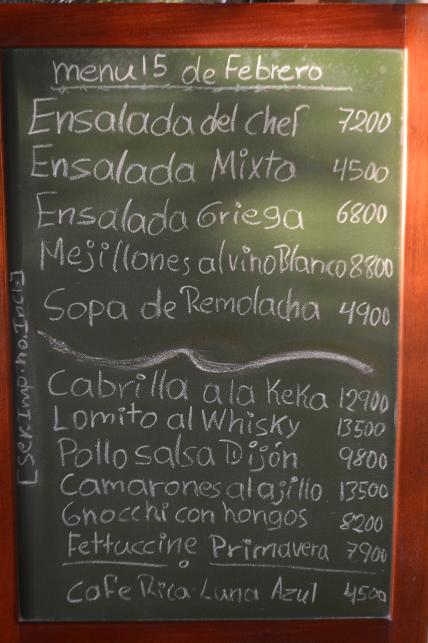 menu 15 de Febrero
Ensalada del chef 7200
Ensalada Mixta 4500
Ensalada Griega 6800
Mejillones al vino Blanco 8800
Sopa de Remolacha 4900
Cabrilla a la KeKa 12900
Lomito al Whisky 13500
Pollo salsa Dijón 9800
Camarones al ajillo 13500
Gnocchi con hongos 8200
Fettuccine Primavera 7900
cafe Rica Luna Azul 4500